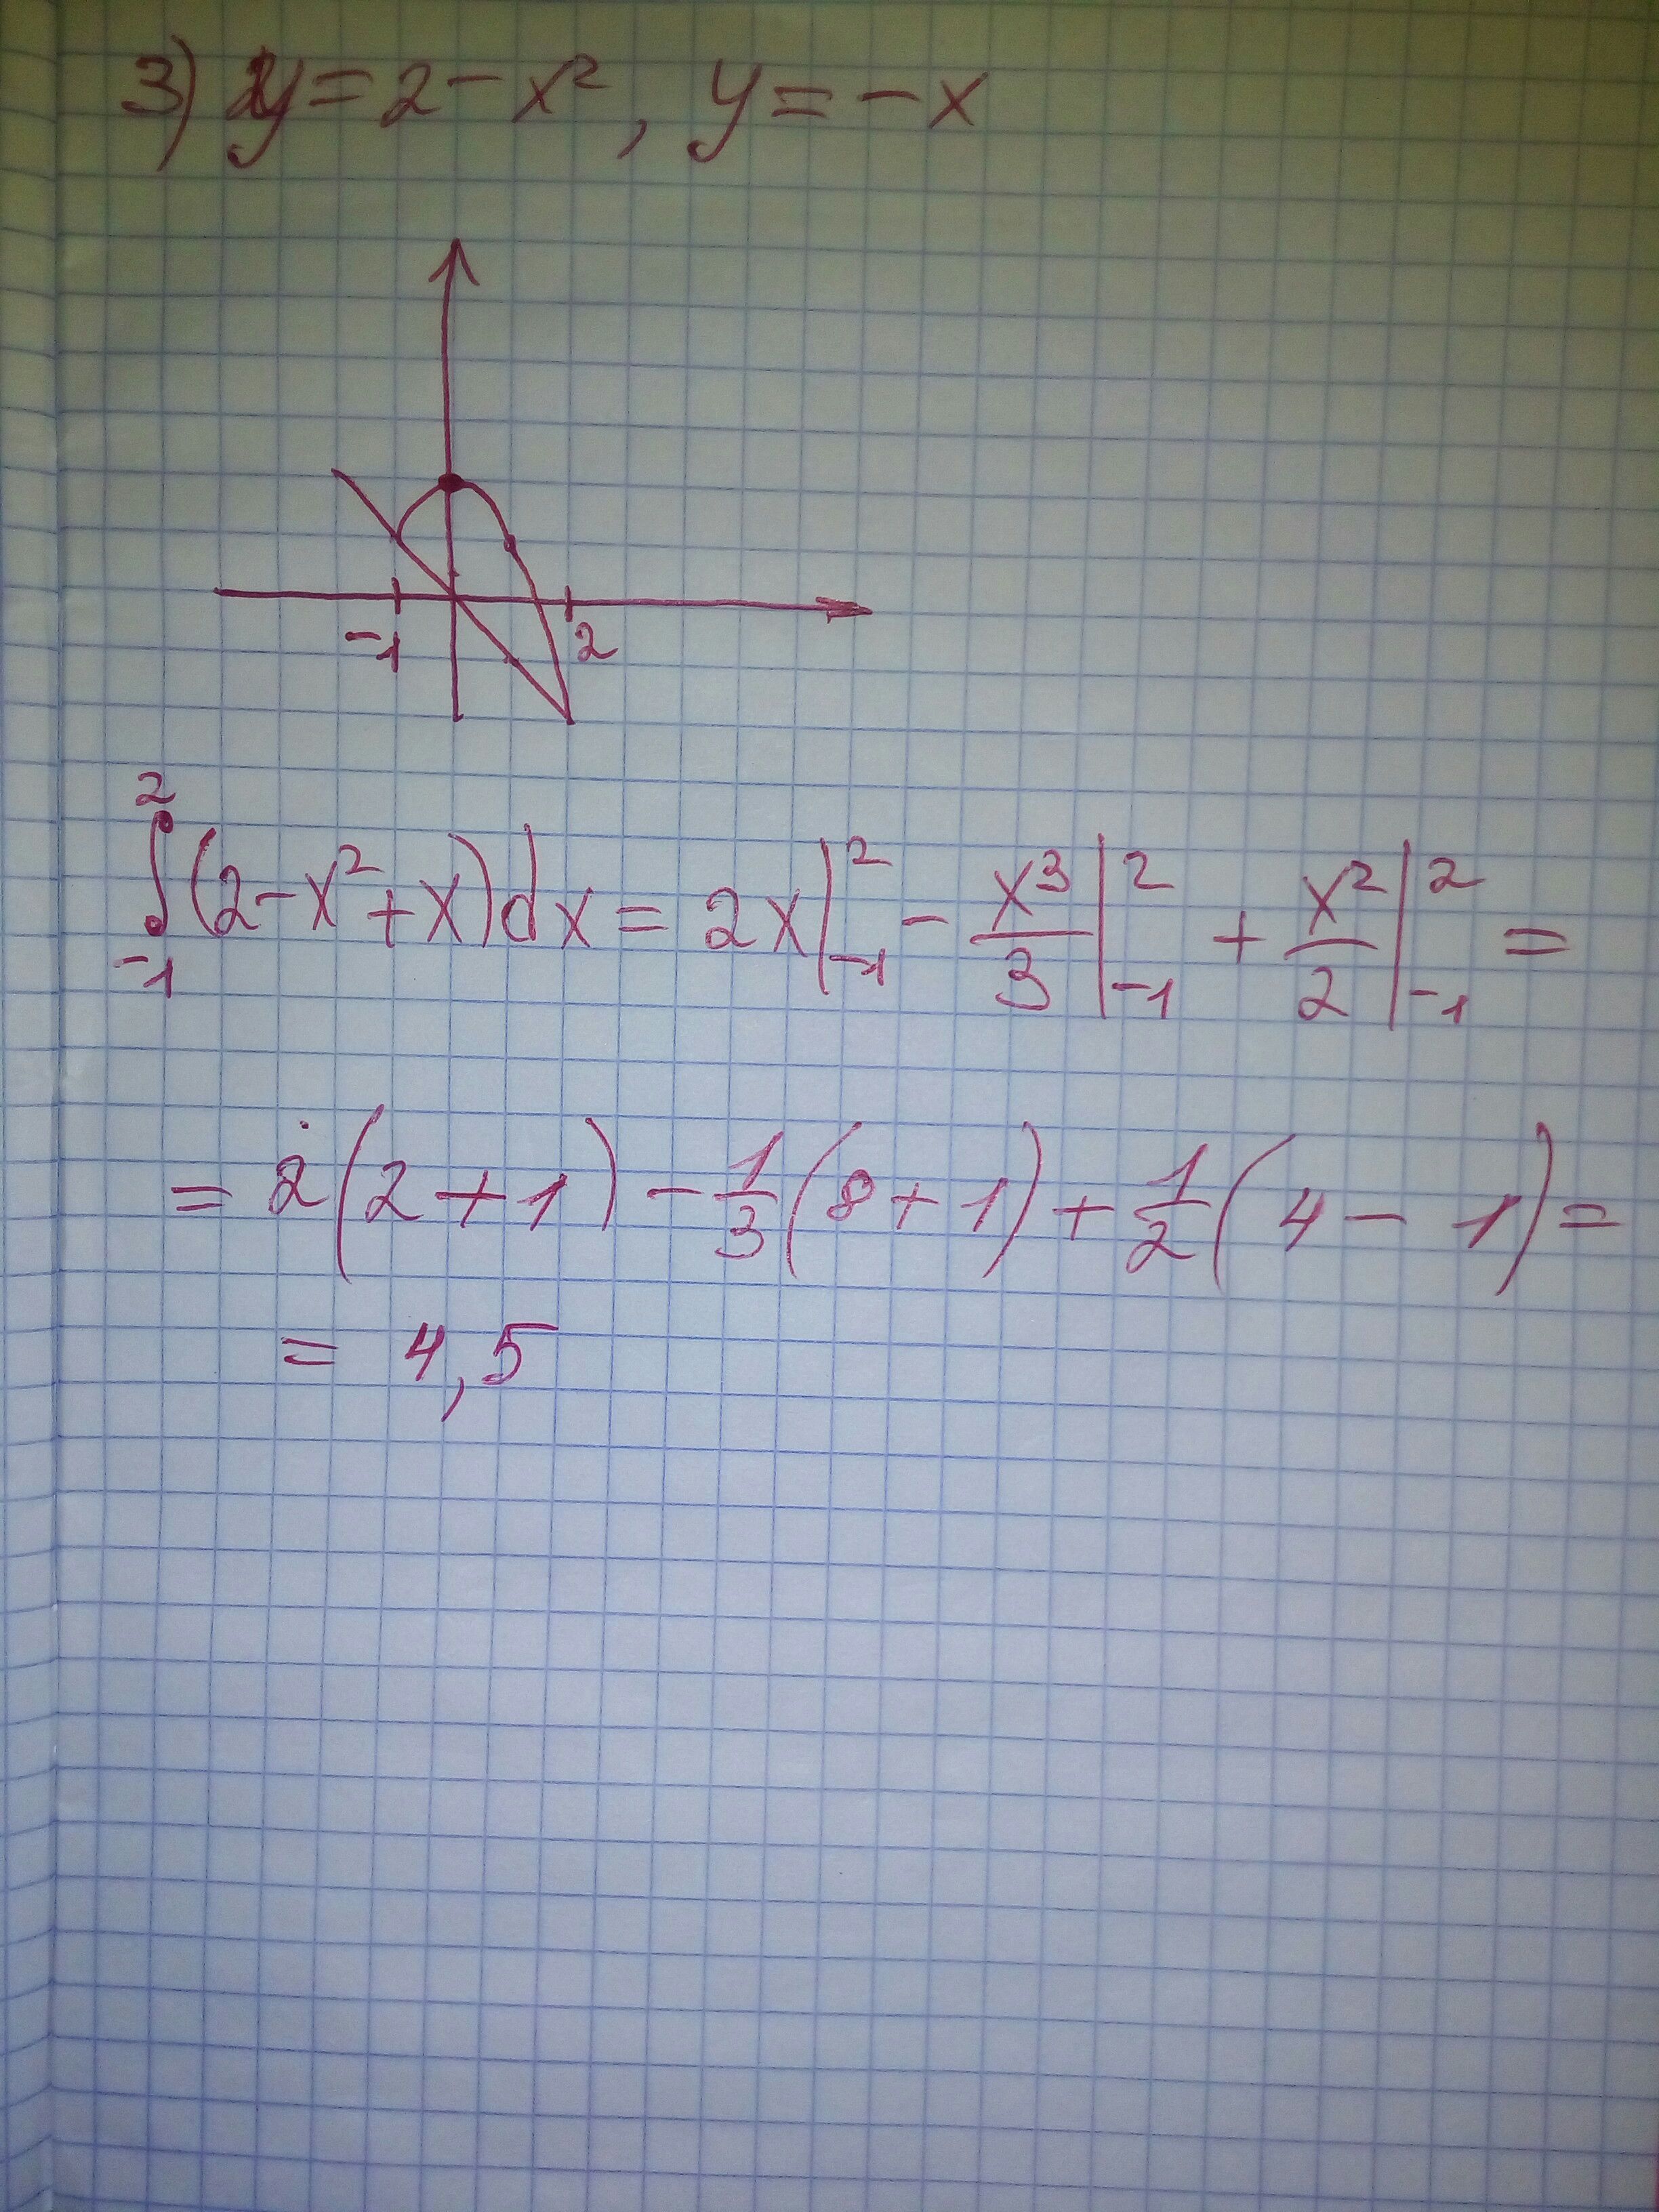 3) y = 2 - x², y = -x
-1 2
∫₋₁² (2 - x² + x) dx = 2x |₋₁² - x³/3 |₋₁² + x²/2 |₋₁² =
= 2(2 + 1) - 1/3 (8 + 1) + 1/2 (4 - 1) =
= 4,5